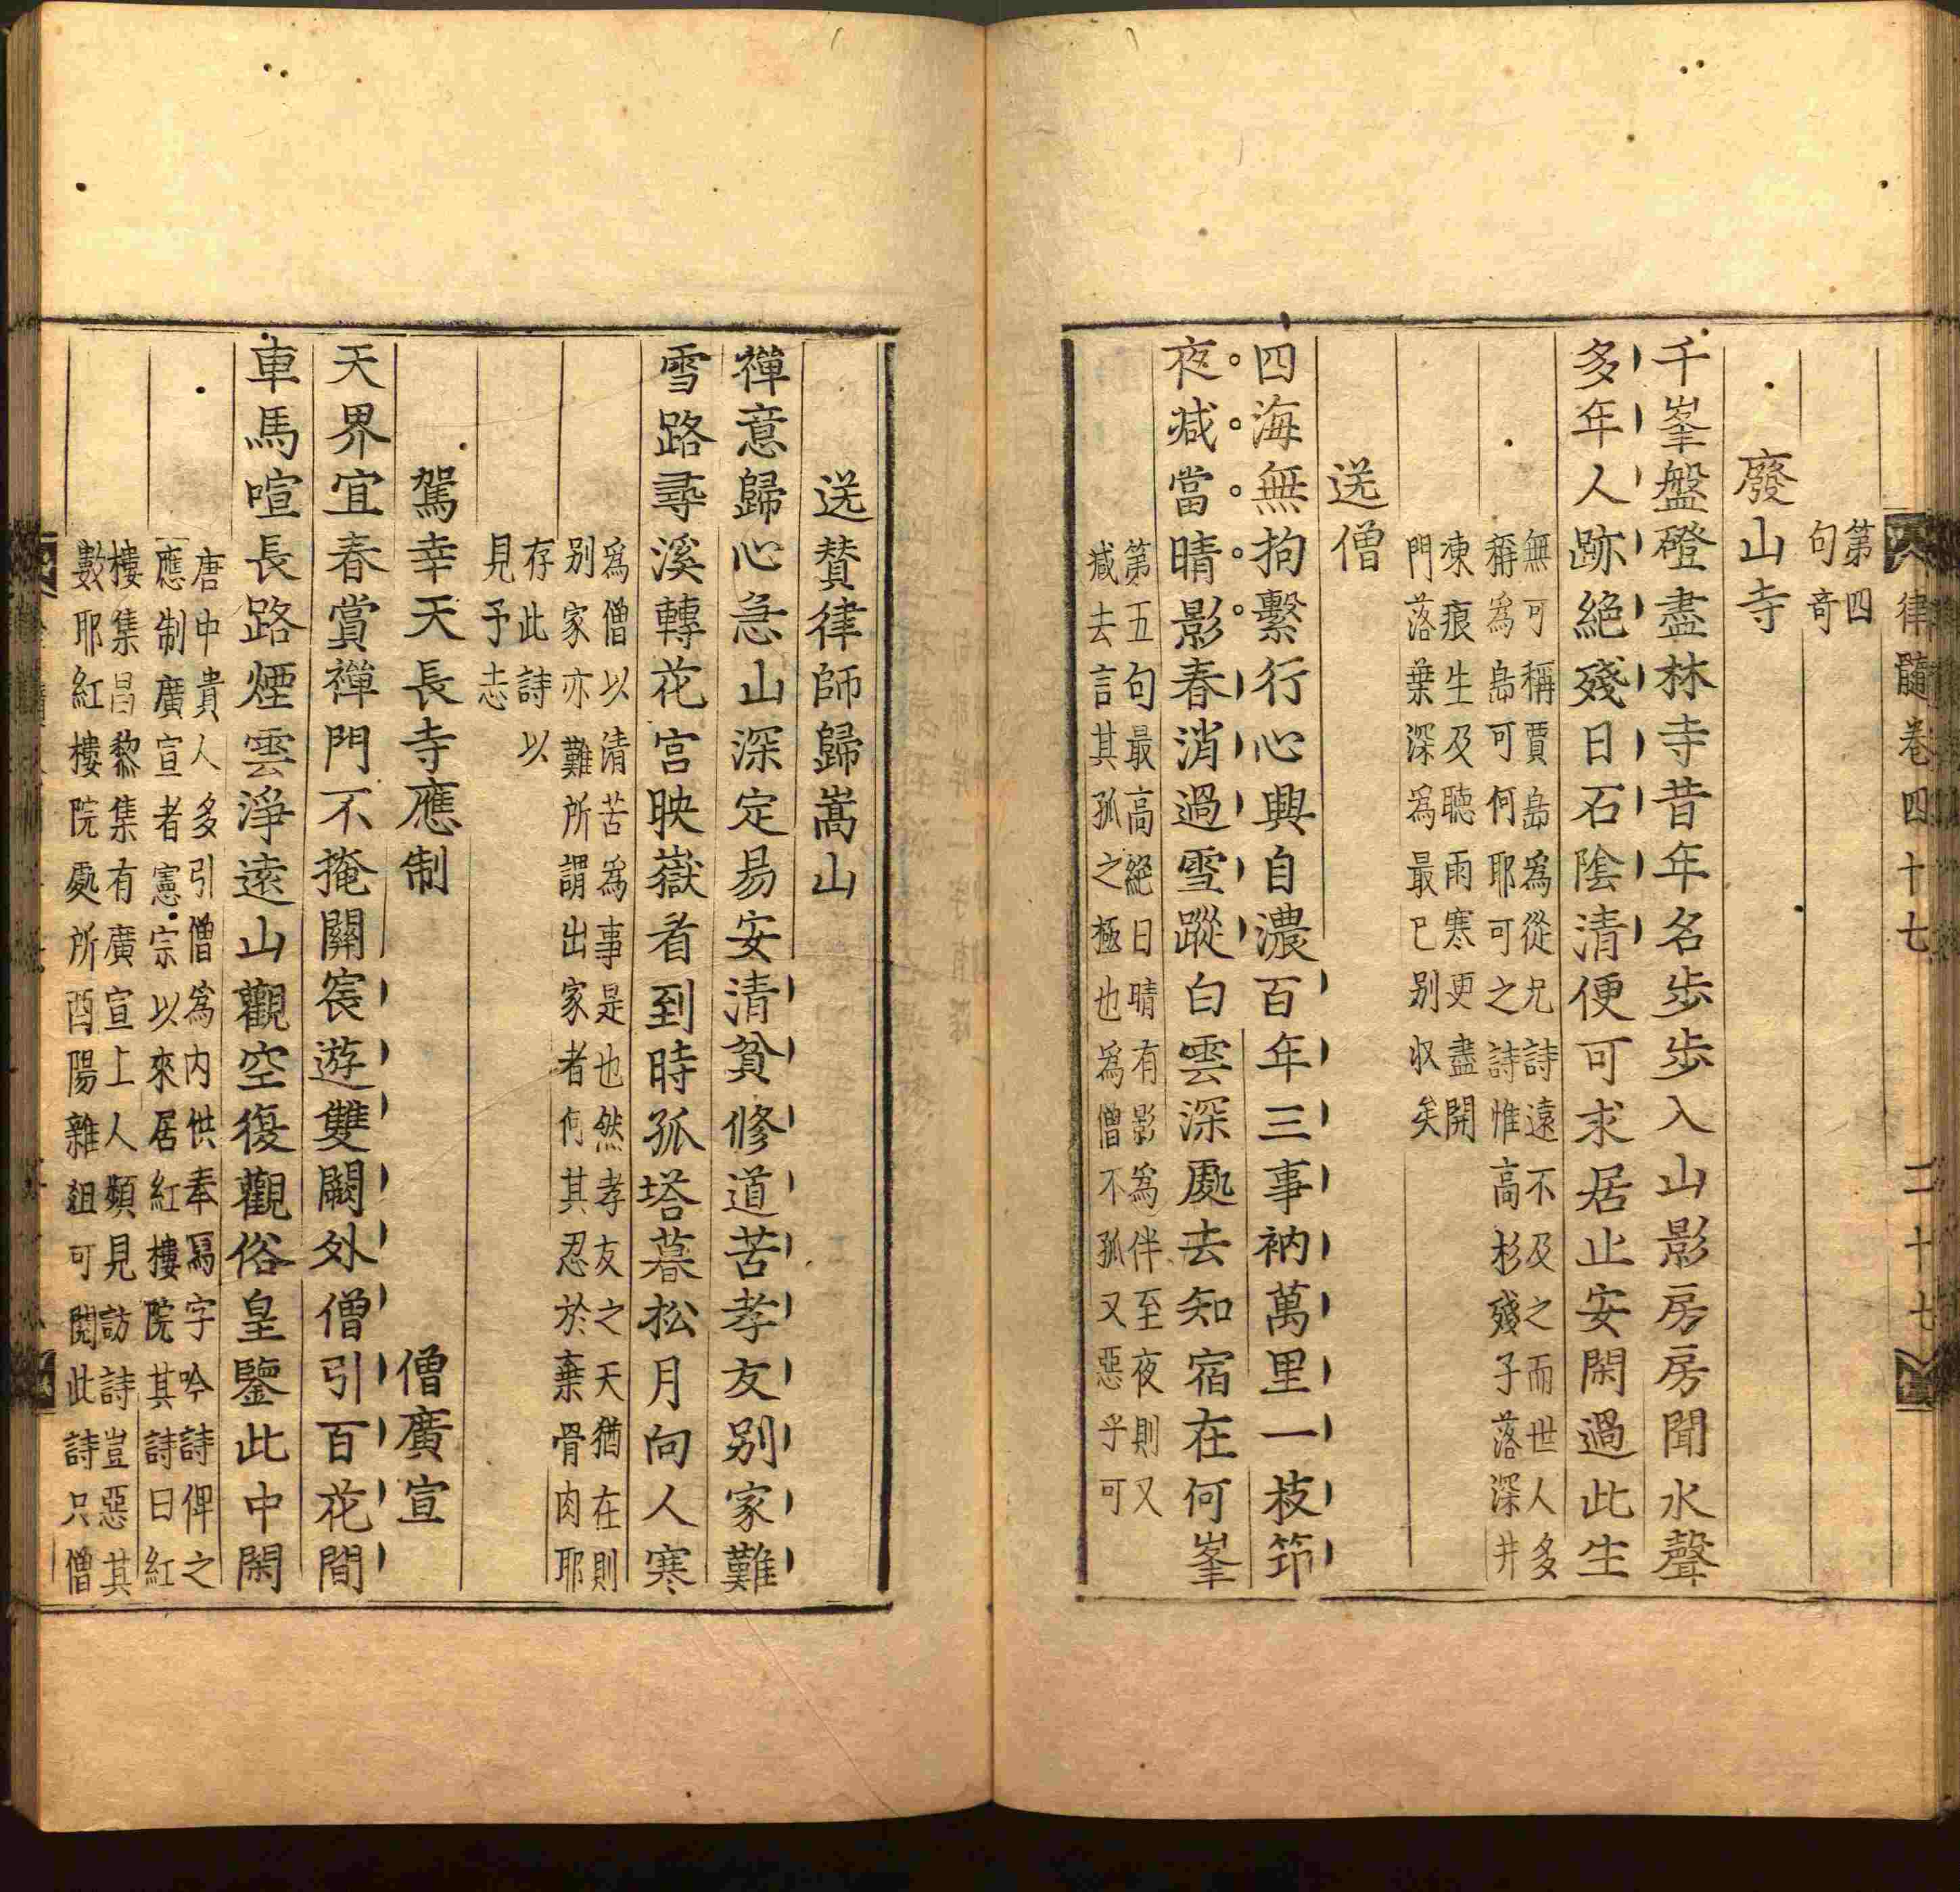 律髓卷四十七　二十七
第四
句竒
廢山寺
千峯盤磴盡林寺昔年名歩歩入山影房房聞水聲
多年人跡絕殘日石陰清便可求居止安閑過此生
無可稱賈島爲從兄詩遠不及之而世人多
稱爲島可何耶可之詩惟高杉殘子落深井
凍痕生及聽雨寒更盡開
門落葉深爲最已别収矣
送僧
四海無拘繫行心興自濃百年三事衲萬里一枝笻
夜減當晴影春消過雪蹤白雲深處去知宿在何峯
第五句最高絕日晴有影爲伴至夜則又
減去言其孤之極也爲僧不孤又惡乎可
送賛律師歸嵩山
禪意歸心急山深定易安清貧修道苦孝友别家難
雪路尋溪轉花宮映嶽看到時孤塔暮松月向人寒
爲僧以清苦爲事是也然孝友之天猶在則
别家亦難所謂出家者何其忍於棄骨肉耶
存此詩以
見予志
駕幸天長寺應制　僧廣宣
天界宜春賞禪門不掩關宸遊雙闕外僧引百花間
車馬喧長路煙雲淨遠山觀空復觀俗皇鑒此中閑
唐中貴人多引僧爲内供奉冩字吟詩俾之
應制廣宣者憲宗以來居紅樓院其詩曰紅
樓集昌黎集有廣宣上人頻見訪詩豈惡其
數耶紅樓院處所酉陽雜俎可閱此詩只僧